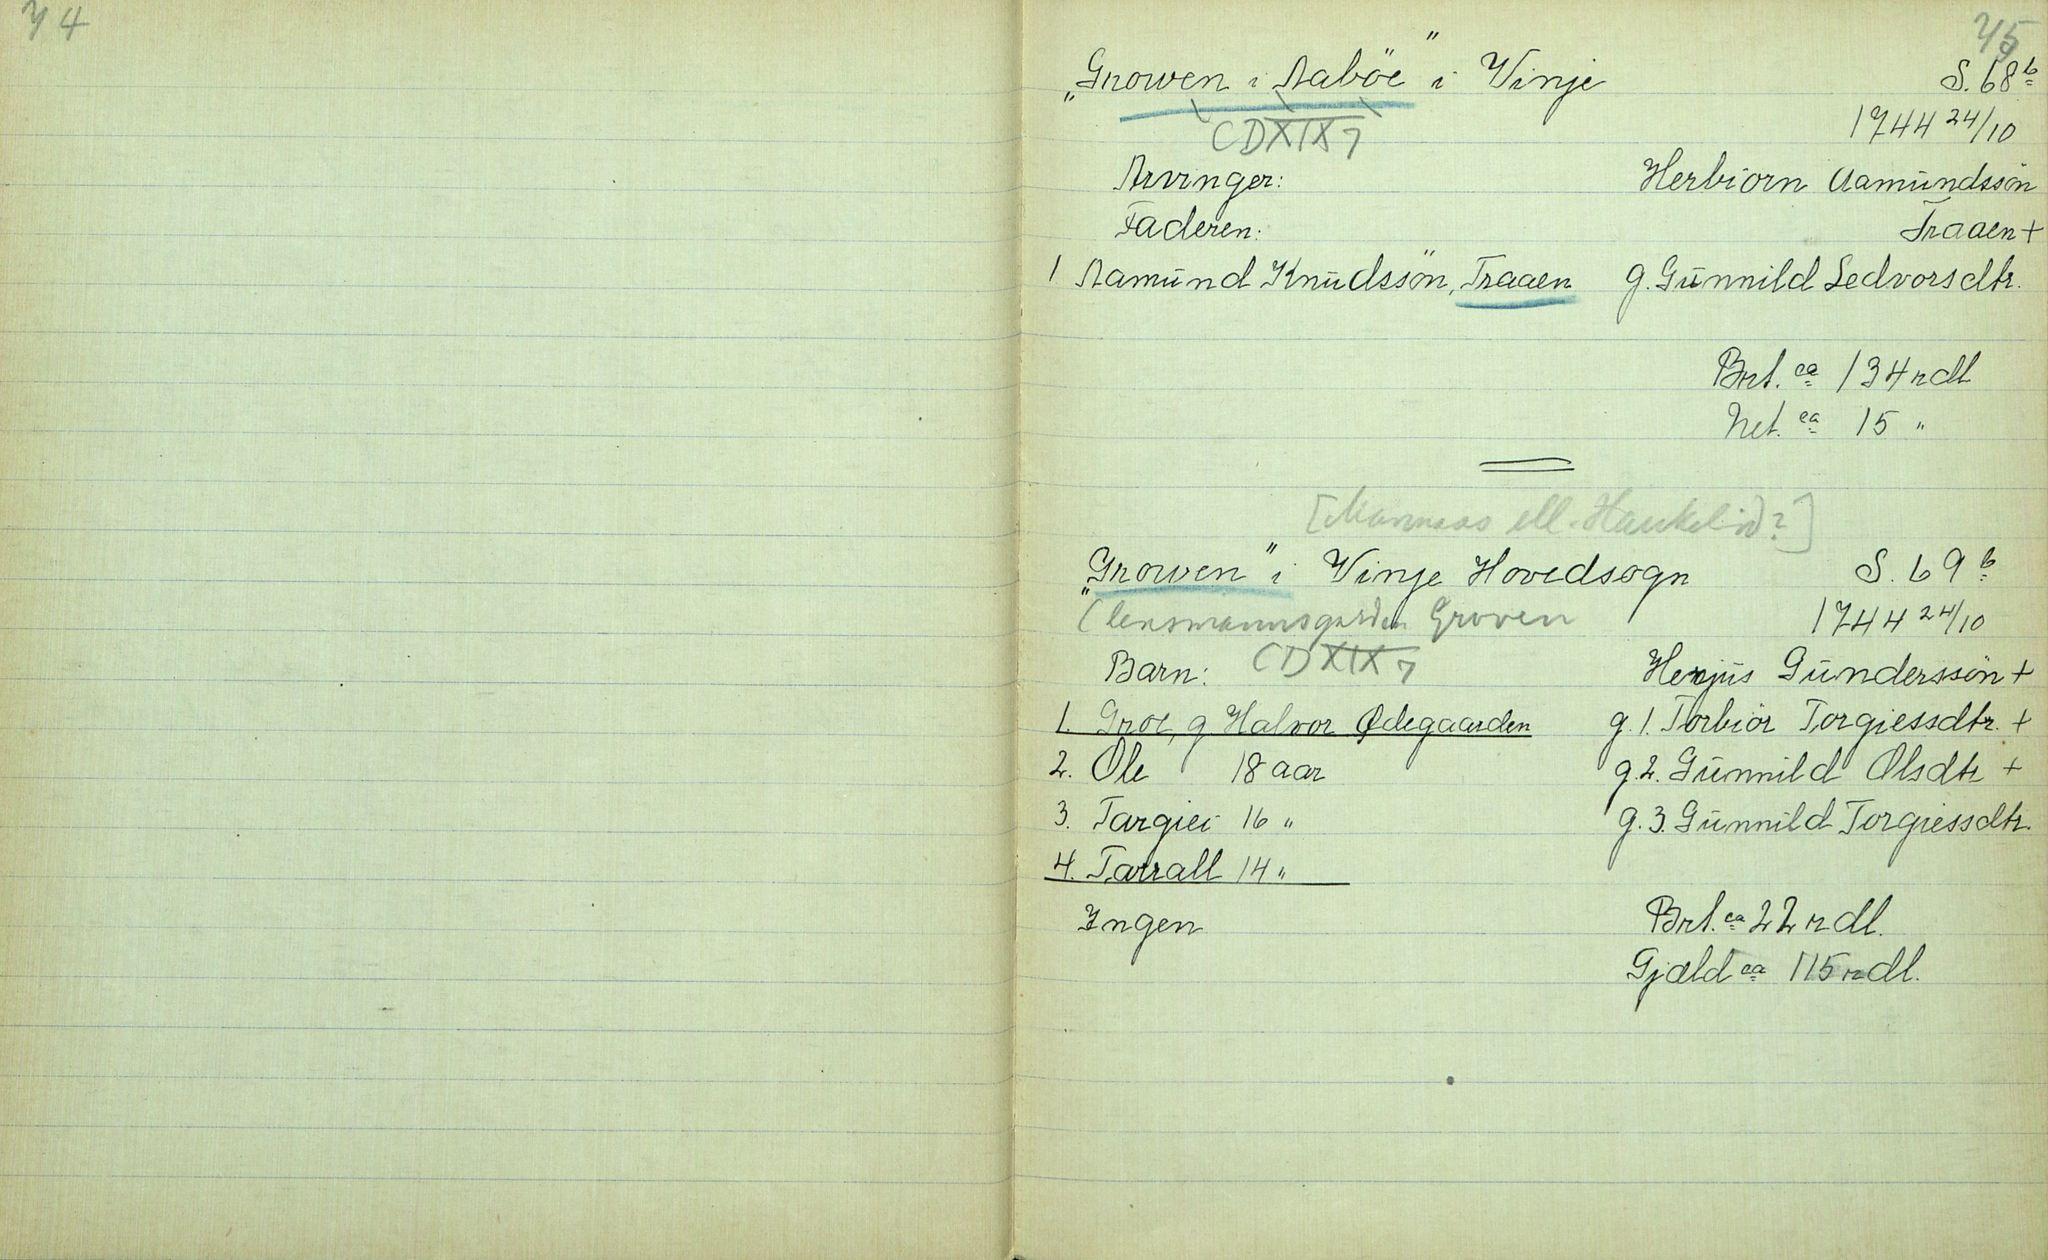 74
75
„Growen i Aaböe" i Winje S. 68 b
1744 24/10
CDXIX 7
Arvinger: Herbiorn Aamundssön
Faderen: Traaen +
1 Aamund Knudssön, Traaen g. Gunnild Ledvorsdtr.
Brt. ca 134 rdl
Net. ca 15 "
[ ell. Haukelid?]
„Growen" i Winje Hovedsogn S. 69 b
(lensmannsgarden Groven 1744 24/10
Barn: CDXIX 7 Herjus Gunderssön +
1. Groe, g Halvor Ødegaarden g. 1. Torbiör Torgiessdtr. +
2. Ole 18 aar g. 2. Gunnild Olsdtr +
3. Targiei 16 " g. 3. Gunnild Torgiessdtr.
4. Tarrall 14 "
Ingen Brt. ca 22 rdl.
Gjæld ca 115 rdl.